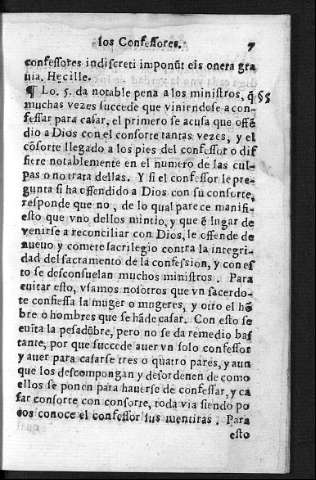 los Confessores. 7
confessores indiscreti imponũt eis onera gra
uia. Hęcille.
¶ Lo. 5. da notable pena a los ministros, q̃ §5
muchas vezes succede que viniendose a con-
fessar para casar, el primero se acusa que offẽ
dio a Dios con el consorte tantas vezes, y el
cõsorte llegado a los pies del confessor o dif
fiere notablemente en el numero de las cul-
pas o no trata dellas. Y si el confessor le pre-
gunta si ha offendido a Dios con su consorte,
responde que no, de lo qual parece manifi-
esto que vno dellos mintio, y que ẽ lugar de
venirse a reconciliar con Dios, le offende de
nueuo y comete sacrilegio contra la integri-
dad del sacramento de la confession, y con es
to se desconsuelan muchos ministros. Para
euitar esto, vsamos nosotros que vn sacerdo-
te confiessa la muger o mugeres, y otro el hõ
bre o hombres que se hã de casar. Con esto se
euita la pesadũbre, pero no se da remedio bas
tante, por que succede auer vn solo confessor
y auer para casarse tres o quatro pares, y aun
que los descompongan y desordenen de como
ellos se ponen para hauerse de confessar, y ca
sar consorte con consorte, toda via siendo po
cos conoce el confessor sus mentiras. Para
esto